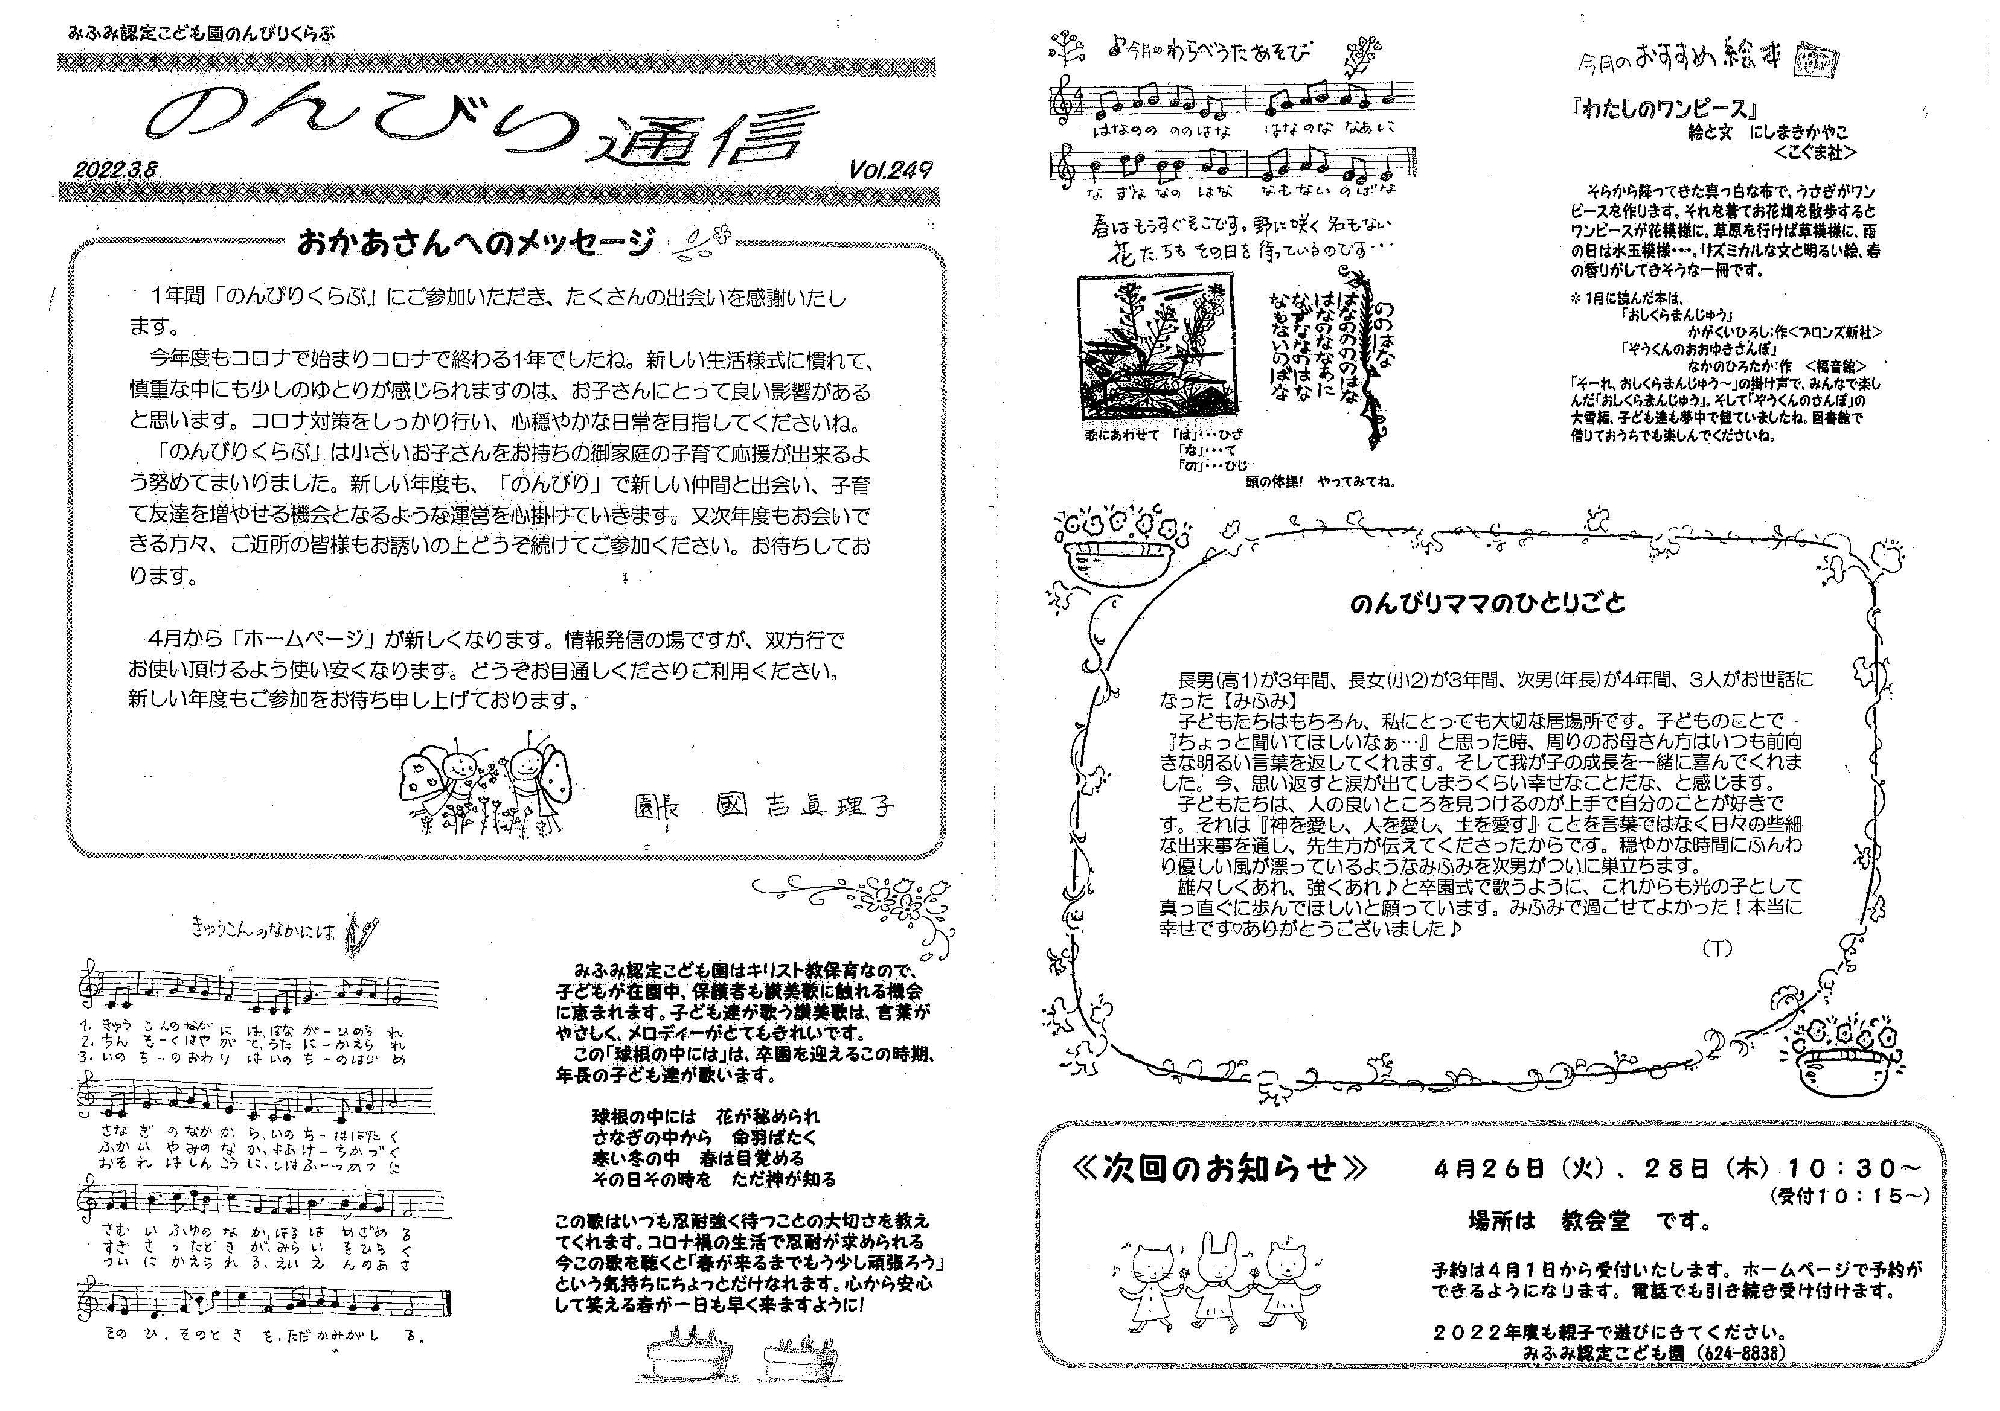 みふみ認定こども園のんびりくらぶ
のんびり通信
2022.3.8
Vol.249
おかあさんへのメッセージ
1年間「のんびりくらぶ」にご参加いただき、たくさんの出会いを感謝いたし
ます。
今年度もコロナで始まりコロナで終わる1年でしたね。新しい生活様式に慣れて、
慎重な中にも少しのゆとりが感じられますのは、お子さんにとって良い影響がある
と思います。コロナ対策をしっかり行い、心穏やかな日常を目指してくださいね。
「のんびりくらぶ」は小さいお子さんをお持ちの御家庭の子育て応援が出来るよ
う努めてまいりました。新しい年度も、「のんびり」で新しい仲間と出会い、子育
て友達を増やせる機会となるような運営を心掛けていきます。又次年度もお会いで
きる方々、ご近所の皆様もお誘いの上どうぞ続けてご参加ください。お待ちしてお
ります。
4月から「ホームページ」が新しくなります。情報発信の場ですが、双方行で
お使い頂けるよう使い安くなります。どうぞお目通しくださりご利用ください。
新しい年度もご参加をお待ち申し上げております。
園長 國吉眞理子
きゅうこんのなかには
1. きゅう こんのなか に は,はな が ー ひめら れ
2. ちん も ー くはや が て,うた に ー かえら れ
3. いの ち ー のおわ り は いの ち ー のはじ め
さな ぎ の なか か ら,いの ち ー はばた く
ふか い や みの な か,よあけ ー ちかづ く
おそ れ は しん こう に,
さむ い ふゆの な か,はる は めざめ る
すぎ さ ったと き が,みら い を ひら く
つい に かえら れ る,えい え んのあ さ
その ひ,そのと き を,ただ かみがし る。
みふみ認定こども園はキリスト教保育なので、
子どもが在園中、保護者も讃美歌に触れる機会
に恵まれます。子ども達が歌う讃美歌は、言葉が
やさしく、メロディーがとてもきれいです。
この「球根の中には」は、卒園を迎えるこの時期、
年長の子ども達が歌います。
球根の中には 花が秘められ
さなぎの中から 命羽ばたく
寒い冬の中 春は目覚める
その日その時を ただ神が知る
この歌はいつも忍耐強く待つことの大切さを教え
てくれます。コロナ禍の生活で忍耐が求められる
今この歌を聴くと「春が来るまでもう少し頑張ろう」
という気持ちにちょっとだけなれます。心から安心
して笑える春が一日も早く来ますように!
♪今月のわらべうたあそび
はなのの ののはな はなのな なあに
な ずな なの はな なもない のばな
春はもうすぐそこです。野に咲く名もない
花たちもその日を待っているのです…
ののはな
はなのののののはな
はなのななあに
なずななのはな
なもないのばな
歌にあわせて 「は」…ひざ
「な」…て
「の」…ひじ
頭の体操! やってみてね。
今月のおすすめ絵本
『わたしのワンピース』
絵と文 にしまきかやこ
<こぐま社>
そらから降ってきた真っ白な布で、うさぎがワン
ピースを作ります。それを着てお花畑を散歩すると
ワンピースが花模様に。草原を行けば草模様に、雨
の日は水玉模様…。リズミカルな文と明るい絵、春
の香りがしてきそうな一冊です。
※1月に読んだ本は、
「おしくらまんじゅう」
かがくいひろし:作<ブロンズ新社>
「ぞうくんのおおゆきさんぽ」
なかのひろたか:作 <福音館>
「そーれ、おしくらまんじゅう~」の掛け声で、みんなで楽し
んだ「おしくらまんじゅう」。そして「ぞうくんのさんぽ」の
大雪編、子ども達も夢中で観ていましたね。図書館で
借りておうちでも楽しんでくださいね。
のんびりママのひとりごと
長男(高1)が3年間、長女(小2)が3年間、次男(年長)が4年間、3人がお世話に
なった【みふみ】
子どもたちはもちろん、私にとっても大切な居場所です。子どものことで
『ちょっと聞いてほしいなぁ…』と思った時、周りのお母さん方はいつも前向
きな明るい言葉を返してくれます。そして我が子の成長を一緒に喜んでくれま
した。今、思い返すと涙が出てしまうくらい幸せなことだな、と感じます。
子どもたちは、人の良いところを見つけるのが上手で自分のことが好きで
す。それは『神を愛し、人を愛し、土を愛す』ことを言葉ではなく日々の些細
な出来事を通し、先生方が伝えてくださったからです。穏やかな時間にふんわ
り優しい風が漂っているようなみふみを次男がついに巣立ちます。
雄々しくあれ、強くあれ♪と卒園式で歌うように、これからも光の子として
真っ直ぐに歩んでほしいと願っています。みふみで過ごせてよかった!本当に
幸せです♡ありがとうございました♪
(T)
≪次回のお知らせ≫
4月26日(火)、28日(木)10:30~
(受付10:15~)
場所は 教会堂 です。
予約は4月1日から受付いたします。ホームページで予約が
できるようになります。電話でも引き続き受け付けます。
2022年度も親子で遊びにきてください。
みふみ認定こども園(624-8838)